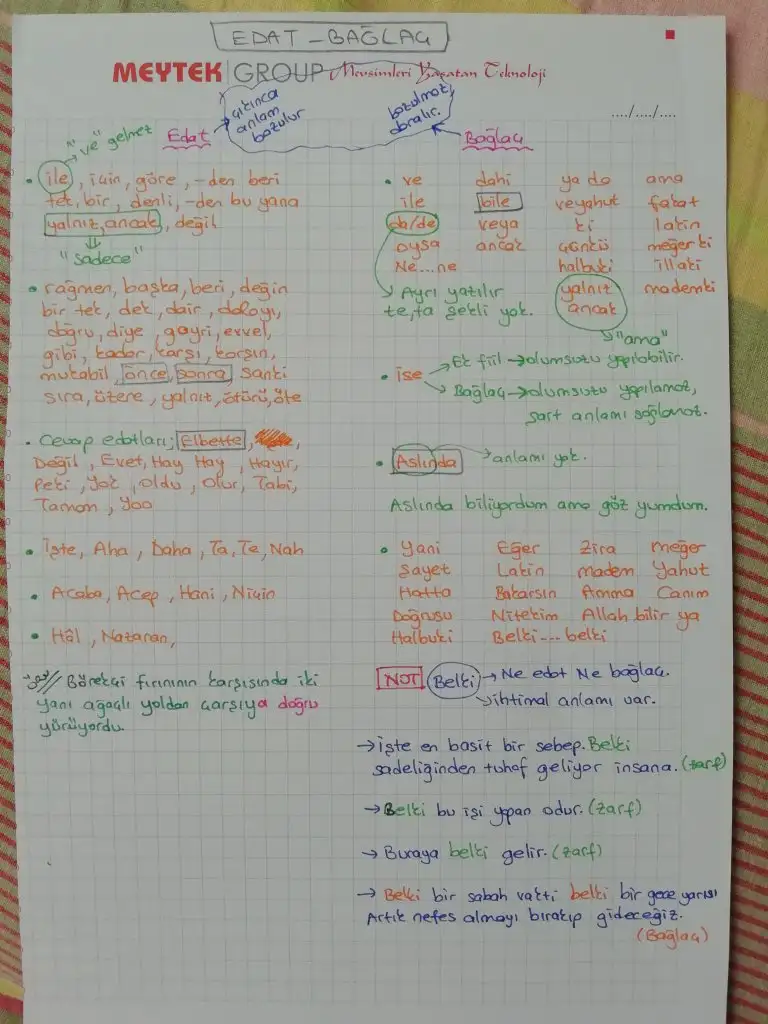 EDAT - BAĞLAÇ
MEYTEK GROUP Mevsimleri Yaşatan Teknoloji
..../..../....
"ve" gelmez
Edat
çıkınca
anlam
bozulur
bozulmaz
daralır.
Bağlaç
• ile, için, göre, -den beri
tek, bir, denli, -den bu yana
yalnız, ancak, değil
"sadece"
• rağmen, başka, beri, değin
bir tek, dek, dair, dolayı,
doğru, diye, gayri, evvel,
gibi, kadar, karşı, karşın,
mukabil, önce, sonra, sanki
sıra, üzere, yalnız, ötürü, öte
• Cevap edatları; Elbette,
Değil, Evet, Hay Hay, Hayır,
Peki, Yok, Oldu, Olur, Tabi,
Tamam, Yoo
• İşte, Aha, Daha, Ta, Te, Nah
• Acaba, Acep, Hani, Niçin
• Hâl, Nazaran,
Börekçi fırınının karşısında iki
yanı ağaçlı yoldan çarşıya doğru
yürüyordu.
• ve dahi ya da ama
ile bile veyahut fakat
da/de veya ki lakin
oysa ancak çünkü meğerki
Ne...ne halbuki illaki
yalnız mademki
ancak
Ayrı yazılır
te,ta şekli yok.
"ama"
• ise
→ Ek fiil → olumsuzu yapılabilir.
→ Bağlaç → olumsuzu yapılamaz,
şart anlamı sağlamaz.
• Aslında → anlamı yok.
Aslında biliyordum ama göz yumdum.
• Yani Eğer Zira meğer
Şayet Lakin madem Yahut
Hatta Bakarsın Amma Canım
Doğrusu Nitekim Allah bilir ya
Halbuki Belki... belki
NOT Belki → Ne edat Ne bağlaç.
→ ihtimal anlamı var.
→ İşte en basit bir sebep. Belki
sadeliğinden tuhaf geliyor insana. (zarf)
→ Belki bu işi yapan odur. (zarf)
→ Buraya belki gelir. (zarf)
→ Belki bir sabah vakti belki bir gece yarısı
Artık nefes almayı bırakıp gideceğiz.
(Bağlaç)